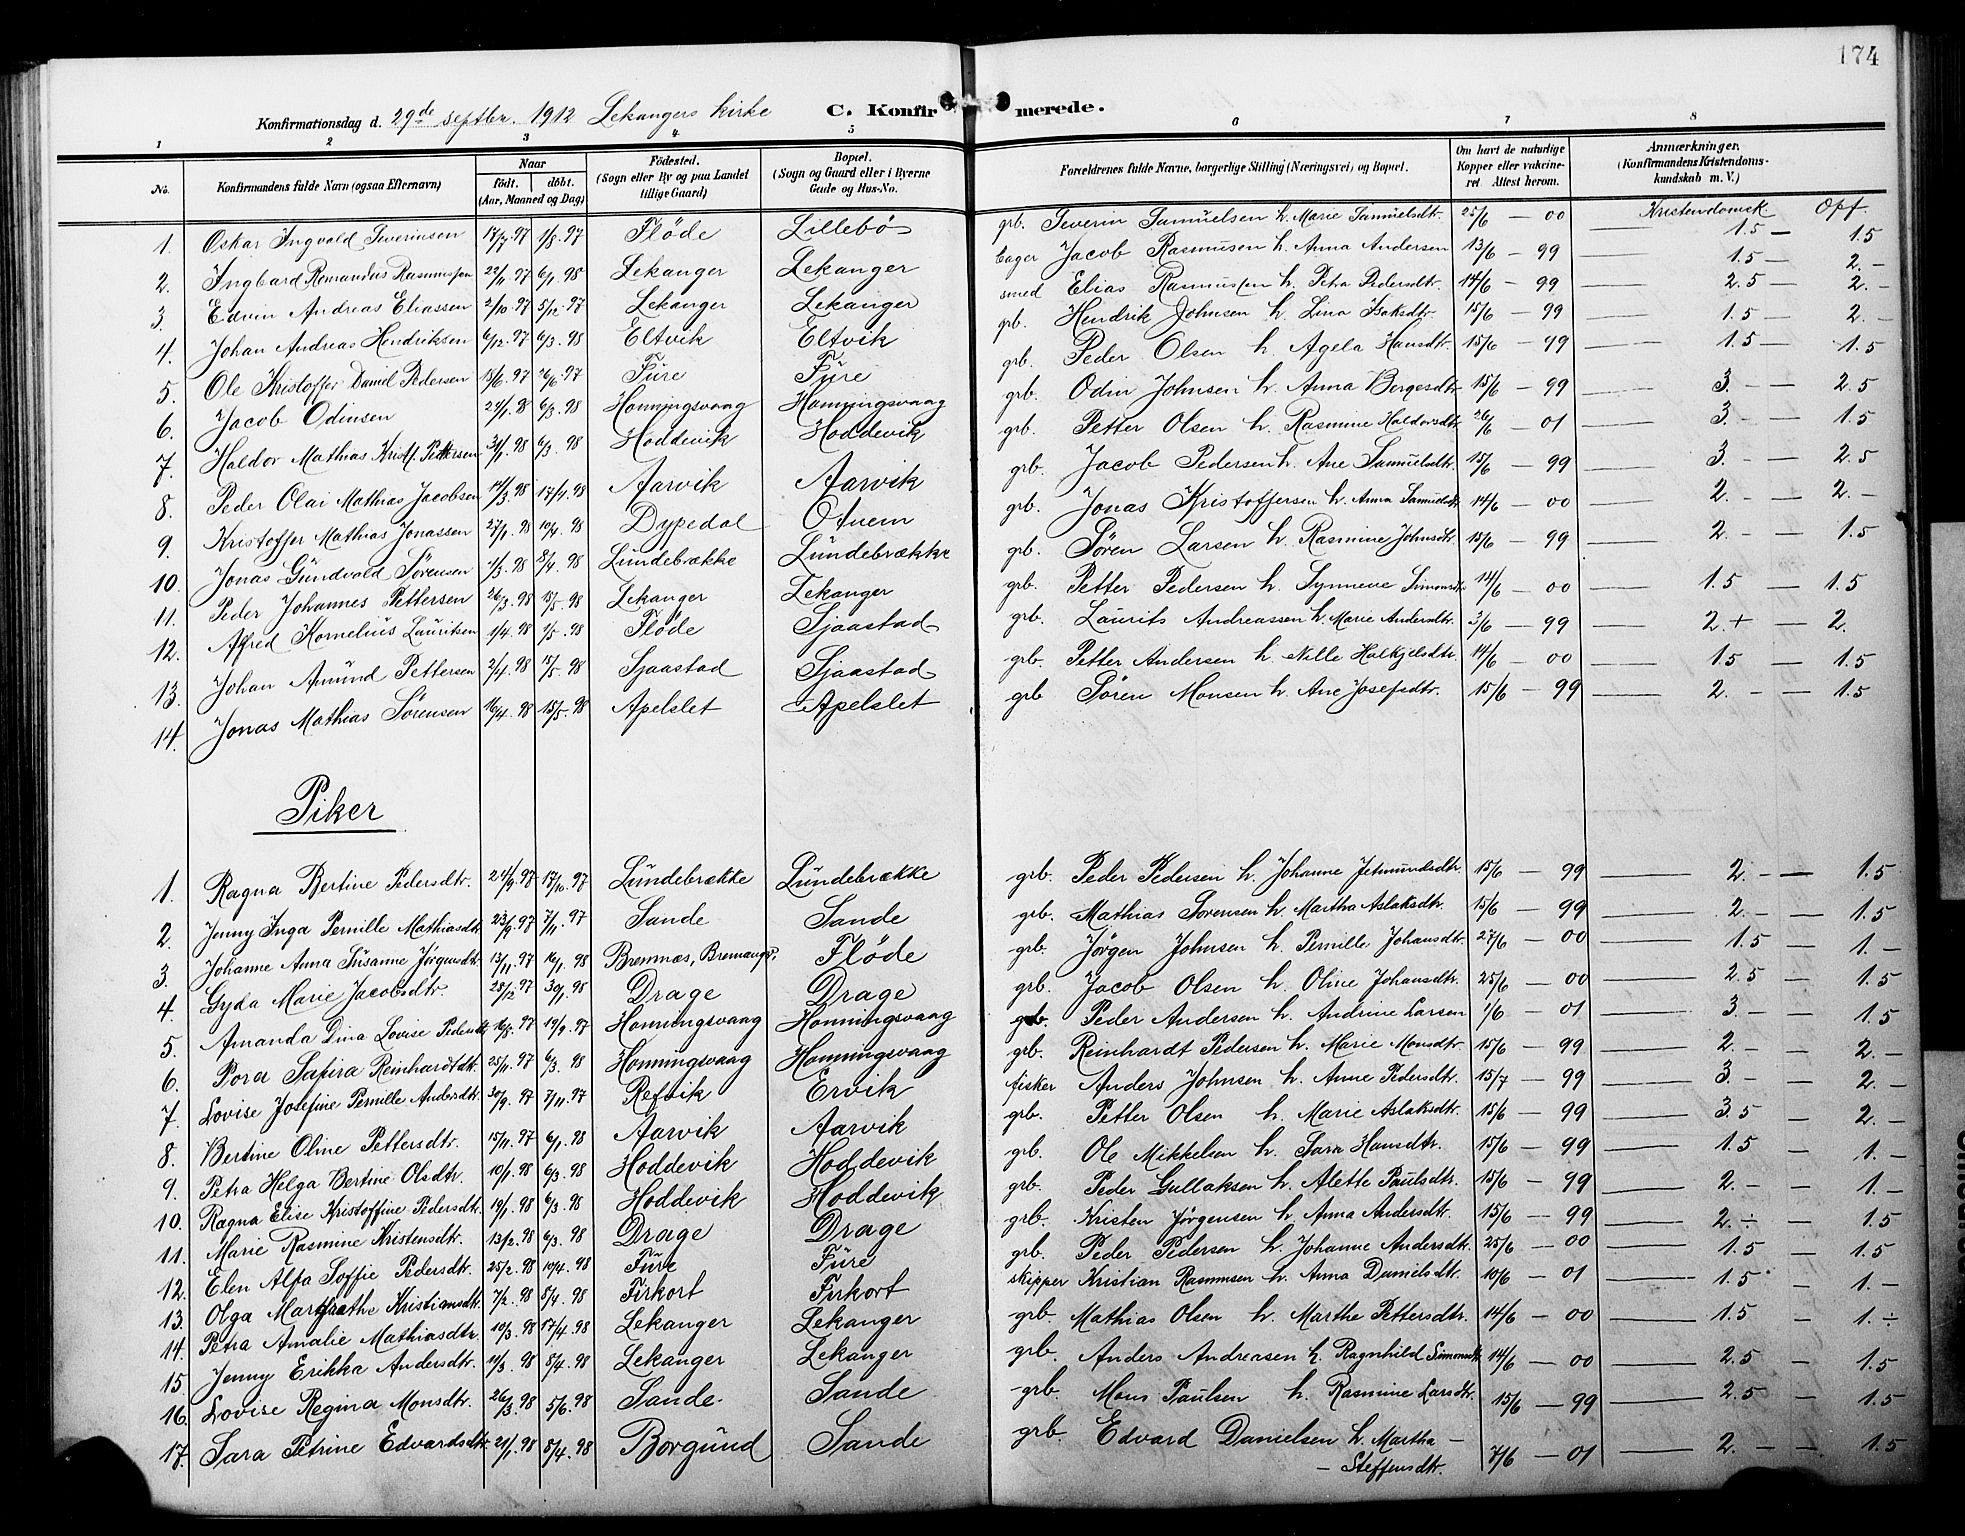 174
Konfirmationsdag d. 29de septbr. 1912 Lekangers kirke C. Konfirmerede.
1 2 3 4 5 6 7 8
No. Konfirmandens fulde Navn (ogsaa Efternavn) Naar født. døbt. (Aar, Maaned og Dag) Fødested. (Sogn eller By og paa Landet tillige Gaard) Bopæl. (Sogn og Gaard eller i Byerne Gade og Hus-No. Forældrenes fulde Navne, borgerlige Stilling (Næringsvei) og Bopæl. Om havt de naturlige Kopper eller vakcineret. Attest herom. Anmærkninger. (Konfirmandens Kristendomskundskab m. V.)
Kristendomsk Opf.
1. Oskar Ingvald Severinsen 17/7 97 1/8 97 Flöde Lillebø grb. Severin Samuelsen h. Marie Samuelsdtr. 25/6 — 00 — 1.5 — 1.5
2. Ingbard Remandus Rasmussen 22/11 97 6/1 98 Lekanger Lekanger Jacob Rasmusen h. Anna Andersen 13/6 — 99 — 1.5 — 2. -
3. Edvin Andreas Eliassen 2/10 97 5/12 97 Lekanger Lekanger smed Elias Rasmussen h. Petra Pedersdtr. 14/6 — 99 — 2.5 — 2. -
4. Johan Andreas Hendriksen 6/12 97 6/3 98 Eltvik Eltvik grb. Hendrik Johnsen h. Lina Isaksdtr. 15/6 — 99 — 1.5 — 2. -
5. Ole Kristoffer Daniel Pedersen 15/6 97 Füre Füre grb. Peder Olsen h. Agela Hansdtr. 15/6 — 99 — 1.5 — 1.5
6. Jacob Odinsen 24/1 98 6/3 98 Honningsvaag Honningsvaag grb. Odin Johnsen h. Anna Borgesdtr. 15/6 — 99 — 3. - — 2.5
7. Haldor Mathias Kristf. Pettersen 31/1 98 6/3 98 Hoddevik Hoddevik grb. Petter Olsen h. Rasmine Haldorsdtr. 26/6 — 01 — 3. - — 1.5
8. Peder Olai Mathias Jacobsen 14/3 98 17/4 98 Aarvik Aarvik grb. Jacob Pedersen h. Ane Samuelsdtr. 15/6 — 99 — 3. - — 2.5
9. Kristoffer Mathias Jonassen 27/1 98 10/4 98 Dypedal Otnem grb. Jonas Kristoffersen h. Anna Samuelsdtr. 14/6 — 00 — 2. - — 2. -
10. Jonas Gündvald Sørensen 1/3 98 8/4 98 Lündebrække Lündebrække grb. Søren Larsen h. Rasmine Johnsdtr. 15/6 — 99 — 2. - — 1.5
11. Peder Johannes Pettersen 26/3 98 15/5 98 Lekanger Lekanger grb. Petter Pedersen h. Synneve Simonsdtr. 14/6 — 00 — 1.5 — 1.5
12. Alfred Kornelius Lauritsen 1/4 98 1/5 98 Flöde Sjaastad grb. Laurits Andreassen h. Marie Andersdtr. 3/6 — 99 — 2. + — 2.
13. Johan Amünd Pettersen 2/4 98 15/5 98 Sjaastad Sjaastad grb. Petter Andersen h. Nille Halkjelsdtr. 14/6 — 00 — 1.5 — 1.5
14. Jonas Mathias Sørensen 16/4 98 15/5 98 Apelslet Apelslet grb Søren Monsen h. Ane Josefsdtr. 15/6 — 99 — 2. - — 1.5
Piker
1. Ragna Bertine Pedersdtr. 24/9 97 17/10 97 Lündebrække Lündebrække grb. Peder Pedersen h. Johanne Jetmundsdtr. 15/6 — 99 — 2. - — 1.5
2. Jenny Inga Pernille Mathiasdtr 23/9 97 7/11 97 Sande Sande grb. Mathias Sørensen h. Martha Aslaksdtr. 15/6 — 99 — 2. - — 1.5
3. Johanne Anna Susanne Jørgensdtr. 13/11 97 16/1 98 Bremnæs, Bremanger Flöde grb. Jørgen Johnsen h. Pernille Johansdtr. 27/6 — 00 — 1.5 — 1. -
4. Gyda Marie Jacobsdtr. 28/12 97 30/1 98 Drage Drage grb. Jacob Olsen h. Oline Johansdtr. 25/6 — 00 — 2.5 — 1.5
5. Amanda Dina Lovise Pedersdtr 16/8 97 19/9 97 Honningsvaag Honningsvaag grb. Peder Andersen h. Andrine Larsen 1/6 — 01 — 3. - — 1.5
6. Pora Safira Reinhardtdtr. 25/11 97 6/3 98 Honningsvaag Honningsvaag grb. Reinhardt Pedersen h. Marie Monsdtr. 15/6 — 99 — 2. - — 2. -
7. Lovise Josefine Pernille Andersdtr 30/9 97 7/11 97 Refvik Ervik fisker Anders Johnsen h. Anne Pedersdtr. 15/7 — 99 — 3. - — 2. -
8. Bertine Oline Pettersdtr. 15/11 97 6/1 98 Aarvik Aarvik grb. Petter Olsen h. Marie Aslaksdtr. 15/6 — 99 — 3.5 — 2. -
9. Petra Helga Bertine Olsdtr. 10/1 98 6/3 98 Hoddevik Hoddevik grb. Ole Mikkelsen h. Sara Hansdtr. 15/6 — 99 — 1.5 — 1. -
10. Ragna Elise Kristoffine Pedersdtr 19/1 98 6/3 98 Hoddevik Hoddevik grb. Peder Gullaksen h. Alette Paulsdtr. 15/6 — 99 — 2. - — 1. -
11. Marie Rasmine Kristensdtr. 13/2 98 6/3 98 Drage Drage grb. Kristen Jørgensen h. Anna Andersdtr. 15/6 — 99 — 2. ÷ — 1.5
12. Elen Alfa Soffie Pedersdtr. 25/2 98 10/4 98 Füre Füre grb. Peder Pedersen h. Johanne Andersdtr. 25/6 — 00 — 1.5 — 1.5
13. Olga Margrathe Kristiansdtr. 7/2 98 8/4 98 Firkort Firkort skipper Kristian Rasmusen h. Anna Danielsdtr. 10/6 — 01 — 1.5 — 1. -
14. Petra Amalie Mathiasdtr. 10/3 98 17/4 98 Lekanger Lekanger grb. Mathias Olsen h. Marthe Pettersdtr. 14/6 — 00 — 1.5 — 1. ÷
15. Jenny Erikka Andersdtr. 11/3 98 8/4 98 Lekanger Lekanger grb. Anders Andreasen h. Ragnhild Simonsdtr 14/6 — 00 — 2.5 — 1.5
16. Lovise Regina Monsdtr. 26/3 98 5/6 98 Sande Sande grb. Mons Paulsen h. Rasmine Larsdtr. 15/6 — 99 — 2.5 — 1.5
17. Sara Petrine Edvardsdtr. 21/1 98 8/4 98 Borgünd Sande grb. Edvard Danielsen h. Martha — 7/6 — 01 — 2. - — 1.5
— Steffensdtr.